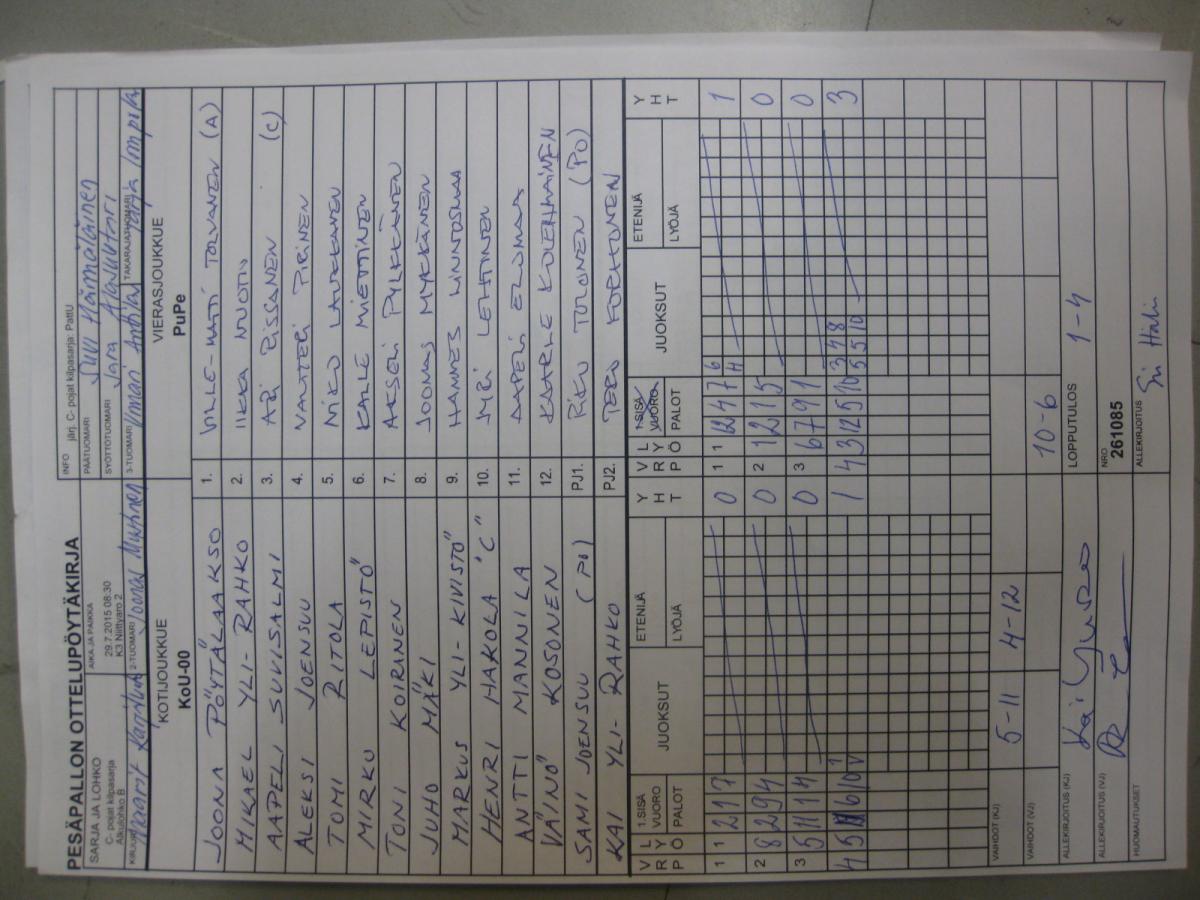 PESÄPALLON OTTELUPÖYTÄKIRJA
SARJA JA LOHKO
C- pojat kilpasarja
Alkulohko B
AIKA JA PAIKKA
29.7.2015 08:30
K3 Niittyaro 2
INFO järj. C- pojat kilpasarja: PattU
PÄÄTUOMARI Suvi Hämäläinen
SYÖTTÖTUOMARI Sara Alaluhtari
KIRJURI
2-TUOMARI Joonas Mustonen
3-TUOMARI Ilmari Anttila
TAKARAJATUOMARI
KOTIJOUKKUE
KoU-00
VIERASJOUKKUE
PuPe
JOONA PÖYTÄLAAKSO 1. VILLE-MATTI TORVANEN (A)
MIKAEL YLI-RAHKO 2. IIKKA NUOTIO
AAPELI SUVISALMI 3. ARI RISSANEN (C)
ALEKSI JOENSUU 4. VALTTERI PIRINEN
TOMI RITOLA 5. NIKO LAUKKANEN
MIRKU LEPISTÖ 6. KALLE MIETTINEN
TONI KOIRANEN 7. AKSELI PYLKKÄNEN
JUHO MÄKI 8. JOONAS MYKKÄNEN
MARKUS YLI-KIVISTÖ 9. HANNES LINNOSMAA
HENRI HAKOLA "C" 10. LEHTINEN
ANTTI MANNILA 11. AAPELI ELOMAA
VÄINÖ KOSONEN 12. KAARLE KOLEHMAINEN
SAMI JOENSUU (PJ) PJ1. RIKU TOLONEN (PJ)
KAI YLI-RAHKO PJ2. TERO KORHONEN
V R P L Y Ö 1.SISÄ VUORO PALOT JUOKSUT ETENIJÄ LYÖJÄ Y H T V R P L Y Ö 1.SISÄ VUORO PALOT JUOKSUT ETENIJÄ LYÖJÄ Y H T
1 1 2 1 7 0 1 1 12 4 7 6 4 1
2 8 2 9 4 0 2 1 2 1 5 0
3 5 11 1 4 0 3 6 7 9 1 0
4 5 1 4 3 12 5 10 3 4 8 5 5 10 3
VAHDOT (KJ) 5-11 4-12
VAHDOT (VJ) 10-6
ALLEKIRJOITUS (KJ)
LOPPUTULOS 1-4
ALLEKIRJOITUS (VJ)
NRO
261085
HUOMAUTUKSET
ALLEKIRJOITUS